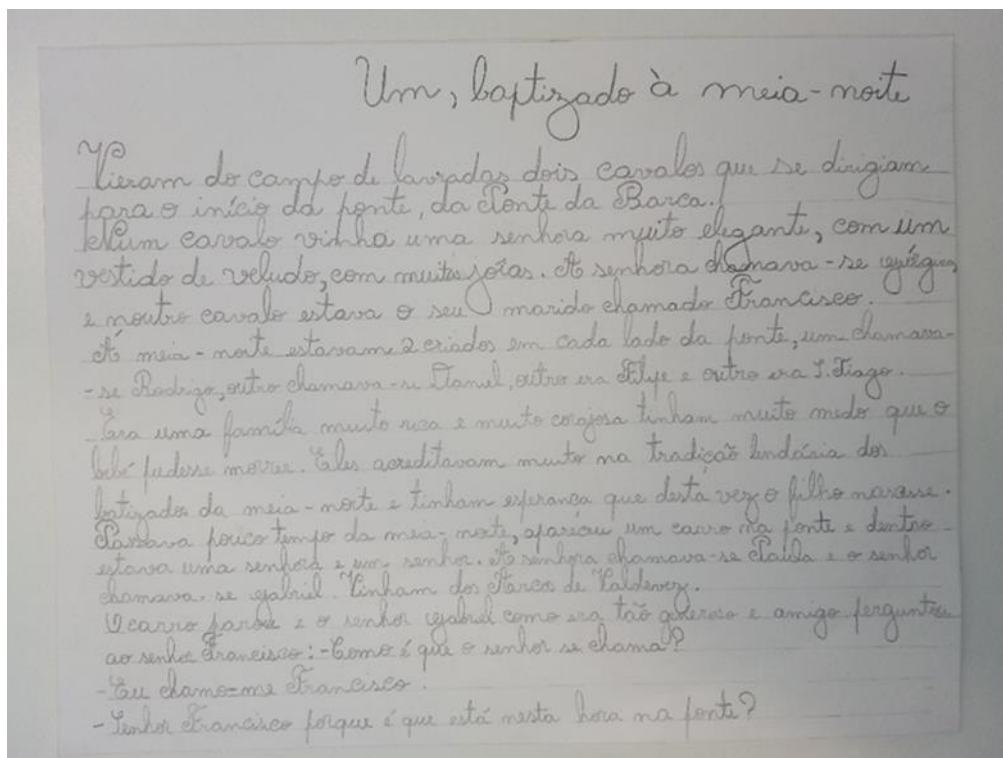 Um, baptizado à meia-noite
Vieram do campo de lavradas dois cavalos que se dirigiam
para o início da ponte, da Ponte da Barca.
Num cavalo vinha uma senhora muito elegante, com um
vestido de veludo, com muitas joias. A senhora chamava-se
e noutro cavalo estava o seu marido chamado Francisco.
Á meia-noite estavam 2 criados em cada lado da ponte, um chamava-
-se Rodrigo, outro chamava-se Daniel, outro era Filipe e outro era S. Tiago.
Era uma família muito rica e muito corajosa tinham muito medo que o
bebé pudesse morrer. Eles acreditavam muito na tradição lendária dos
batizados da meia-noite e tinham esperança que desta vez o filho
Passava pouco tempo da meia-noite, apareceu um carro na ponte e dentro
estava uma senhora e um senhor. A senhora chamava-se e o senhor
chamava-se Gabriel. Vinham dos Arcos de Valdevez.
O carro parou e o senhor Gabriel como era tão generoso e amigo perguntou
ao senhor Francisco: - Como é que o senhor se chama?
- Eu chamo-me Francisco.
- Senhor Francisco porque é que está nesta hora na ponte?